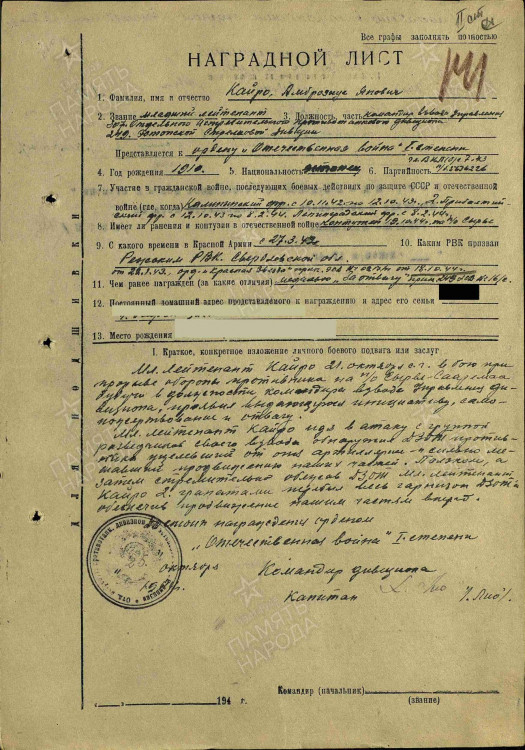 II ст
Все графы заполнять полностью
НАГРАДНОЙ ЛИСТ
1. Фамилия, имя и отчество Кайро, Амброзиус Янович
2. Звание младший лейтенант 3. Должность, часть командир взвода управления
307 отдельного истребительного противотанкового дивизиона
249 Эстонской стрелковой дивизии
Представляется к ордену „Отечественная война“ I степени
4. Год рождения 1910 5. Национальность эстонец 6. Партийность
7. Участие в гражданской войне, последующих боевых действиях по защите СССР и отечественной
войне (где, когда) Калининский фр. с 10.11.42 по 12.10.43 г. 2 Прибалтий
ский фр. с 12.10.43 по 8.2.44. Ленинградский фр. с 8.2.44г.
8. Имеет ли ранения и контузии в отечественной войне контужен 13.10.44г. на п/о Сырве
9. С какого времени в Красной Армии с 27.3.42г. 10. Каким РВК призван
Режевским РВК. Свердловской обл.
11. Чем ранее награжден (за какие отличия) медалью „За отвагу“
12. Постоянный домашний адрес представляемого к награждению и адрес его семьи
13. Место рождения
I. Краткое, конкретное изложение личного боевого подвига или заслуг
Мл. лейтенант Кайро 21. октября с.г. в бою при
прорыве обороны противника на п/о Сырве Сааремаа
будучи в должности командира взвода управления ди-
визиона, проявил выдающуюся инициативу, само-
пожертвование и отвагу.
Мл. лейтенант Кайро идя в атаку с группой
разведчиков своего взвода обнаружил ДЗОТ против-
ника уцелевший от огня артиллерии и сильно ме-
шавший продвижению наших частей. Ползком, а
затем стремительно обойдя ДЗОТ мл. лейтенант
Кайро 2 гранатами подбил весь гарнизон ДЗОТа
обеспечив продвижение нашим частям вперед.
Достоин награждения орденом
„Отечественная война“ I степени
октября Командир дивизиона
Капитан /Лио/.
Командир (начальник)
„ “ 194 г. (звание)
ПАМЯТЬ НАРОДА